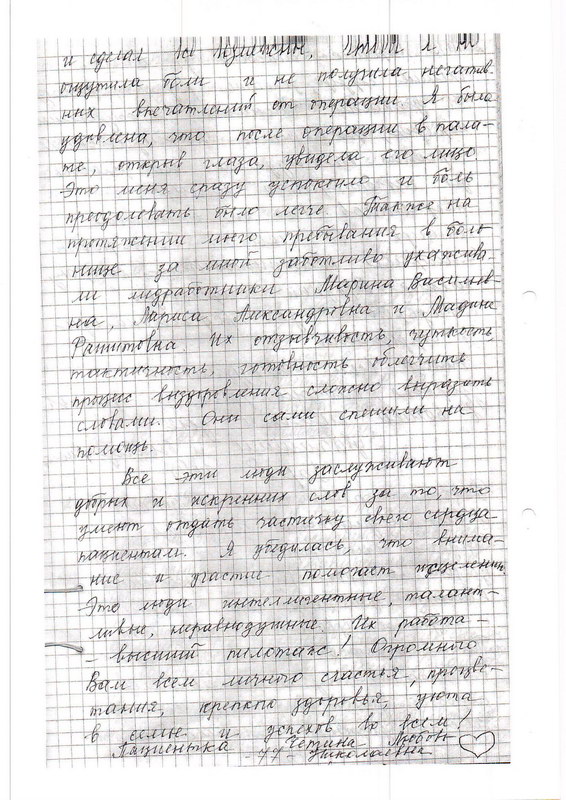 и сделал
ощутила боли и не получила негатив-
ных впечатлений от операции. Я была
удивлена, что после операции в пала-
те, открыв глаза, увидела его лицо.
Это меня сразу успокоило и боль
преодоловать было легче. Также на
протяжении моего пребывания в боль-
нице за мной заботливо ухажива-
ли медработники Марина Васильев-
на, Лариса Александровна и Мадина
Рашитовна. Их отзывчивость, чуткость,
тактичность, готовность облегчить
процес выздоровления сложно выразить
словами. Они сами спешили на
помощь.
Все эти люди заслуживают
добрых и искренних слов за то, что
умеют отдать частичку своего сердца
пациентам. Я убедилась, что внима-
ние и участие помогает исцелению.
Это люди интеллигентные, талант-
ливые, неравнодушные. Их работа -
- высший пилотаж! Огромного
Вам всем личного счастья, процве-
тания, крепкого здоровья, уюта
в семье и успехов во всем!
Пациентка Любовь
Николаевна